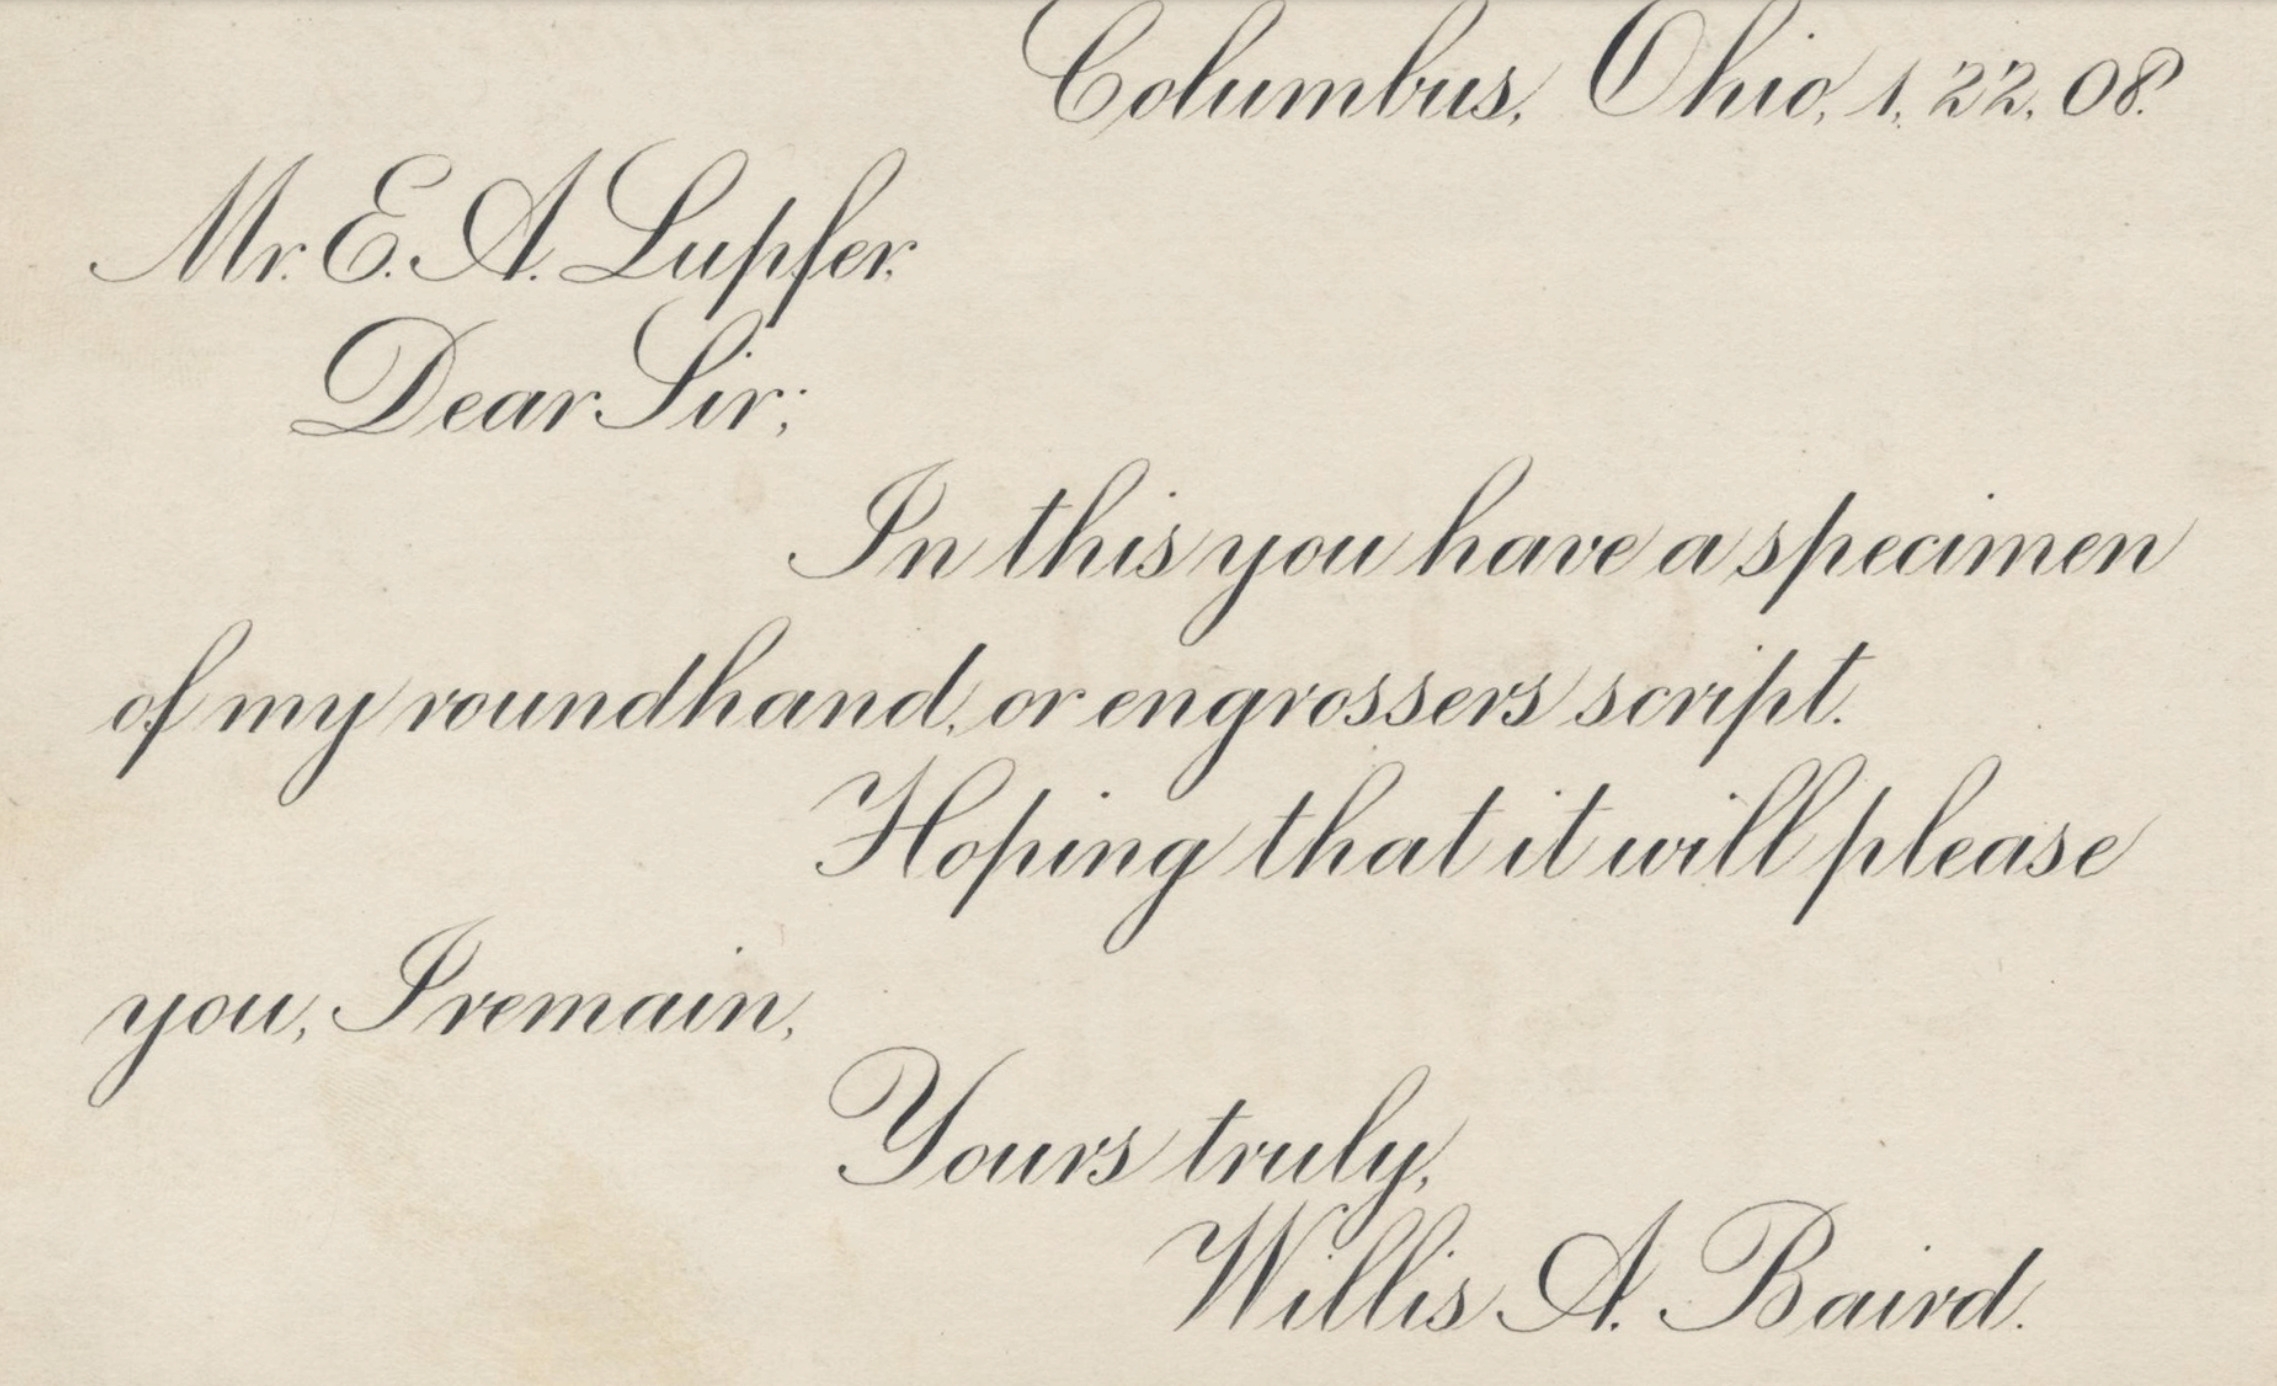 Columbus, Ohio, 1, 22, 08.
Mr. E. A. Lupfer,
Dear Sir;
In this you have a specimen
of my roundhand, or engrossers script.
Hoping that it will please
you, I remain,
Yours truly,
Willis A. Baird.